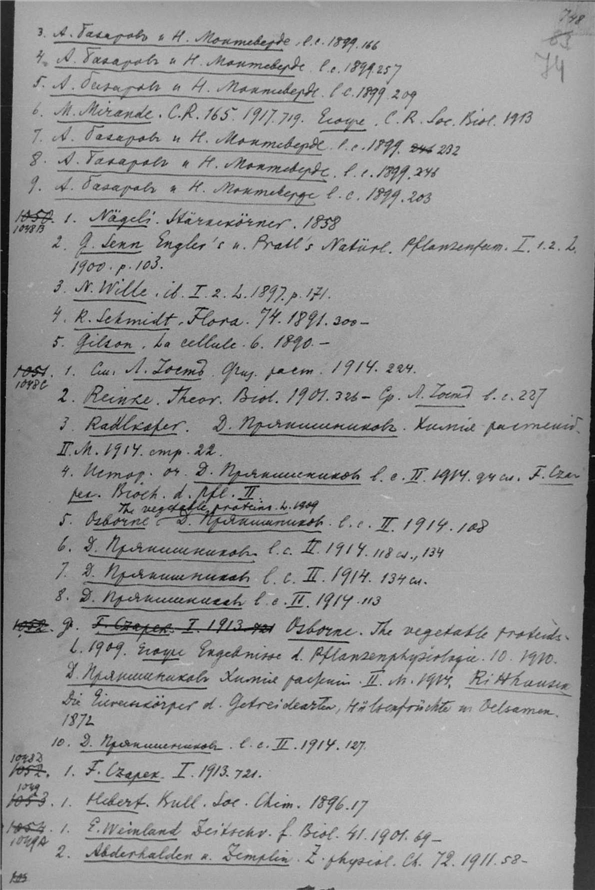 748
83
74
3. А. Базаровъ и Н. Монтеверде, l.c. 1899. 166
4. А. Базаровъ и Н. Монтеверде l.c. 1899. 257
5. А. Базаровъ и Н. Монтеверде l.c. 1899. 209
6. M. Mirande. C.R. 165. 1917. 719. Егоже. C.R. Soc. Biol. 1913
7. А. Базаровъ и Н. Монтеверде l.c. 1899. 246 232
8. А. Базаровъ и Н. Монтеверде, l.c. 1899. 246
9. А. Базаровъ и Н. Монтеверде l.c. 1899. 203
1050 1. Nägeli Stärkekörner. 1858
1048B
2. G. Senn Engler's u. Pratl's Natürl. Pflanzenfam. I. 1. 2. L.
1900. p. 103.
3. N. Wille. ib. I. 2. L. 1897. p. 171.
4. K. Schmidt. Flora. 74. 1891. 300–
5. Gilson. La cellule. 6. 1890.–
1051. 1. См. Л. Iостъ. Физ. раст. 1914. 224.
1048C
2. Reinke. Theor. Biol. 1901. 326– Ср. Л. Iостъ l.c. 227
3 Radlkofer. Д. Прянишниковъ. Химiя растенiй.
II. М. 1914. стр. 22.
4. Истор. оч. Д. Прянишниковъ l.c. II 1914. 94 сл. F. Cza-
pek. Bioch. d. Pfl. II
The vegetable proteins. L. 1909
5. Osborne Д. Прянишниковъ. l.c. II. 1914. 108
6. Д. Прянишниковъ. l.c. II. 1914. 118 сл., 134
7. Д. Прянишниковъ l.c. II. 1914. 134 сл.
8. Д. Прянишниковъ l.c. II. 1914. 113
1052. 9. F. Czapek. I. 1913. 721 Osborne. The vegetable proteids.
L. 1909. Егоже Ergebnisse d. Pflanzenphysiologie. 10. 1910.
Д. Прянишниковъ Химiя растенiй. II. М. 1914. Ritthausen
Die Eiweisskörper d. Getreidearten, Hülsenfrüchte u. Oelsamen.
1872
10. Д. Прянишниковъ. l.c. II. 1914. 127.
1048D
1052. 1. F. Czapek. I. 1913. 721.
1049
1053. 1. Hebert. Bull. Soc. Chim. 1896. 17
1054. 1. E. Weinland Zeitschr. f. Biol. 41. 1901. 69–
1049A
2. Abderhalden u. Zemplin. Z. physiol. Ch. 72. 1911. 58–